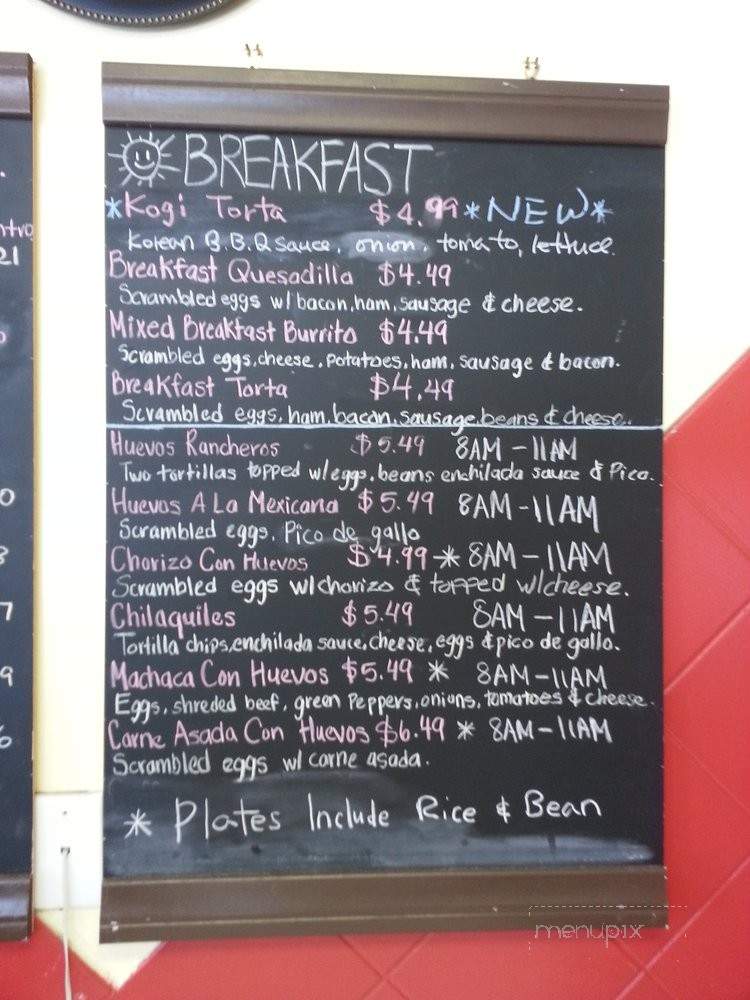 BREAKFAST
*Kogi Torta $4.99 *NEW*
Korean B.B.Q sauce, onion, tomato, lettuce.
Breakfast Quesadilla $4.49
Scrambled eggs w/ bacon, ham, sausage & cheese.
Mixed Breakfast Burrito $4.49
Scrambled eggs, cheese, potatoes, ham, sausage & bacon.
Breakfast Torta $4.49
Scrambled eggs, ham, bacon, sausage, beans & cheese.
Huevos Rancheros $5.49 8AM - 11AM
Two tortillas topped w/eggs, beans enchilada sauce & Pico.
Huevos A La Mexicana $5.49 8AM - 11AM
Scrambled eggs, Pico de gallo
Chorizo Con Huevos $4.99 * 8AM - 11AM
Scrambled eggs w/chorizo & topped w/cheese.
Chilaquiles $5.49 8AM - 11AM
Tortilla chips, enchilada sauce, cheese, eggs & pico de gallo.
Machaca Con Huevos $5.49 * 8AM - 11AM
Eggs, shreded beef, green Peppers, onions, tomatoes & cheese.
Carne Asada Con Huevos $6.49 * 8AM - 11AM
Scrambled eggs w/ carne asada.
* Plates Include Rice & Bean
menupix
21
0
7
9